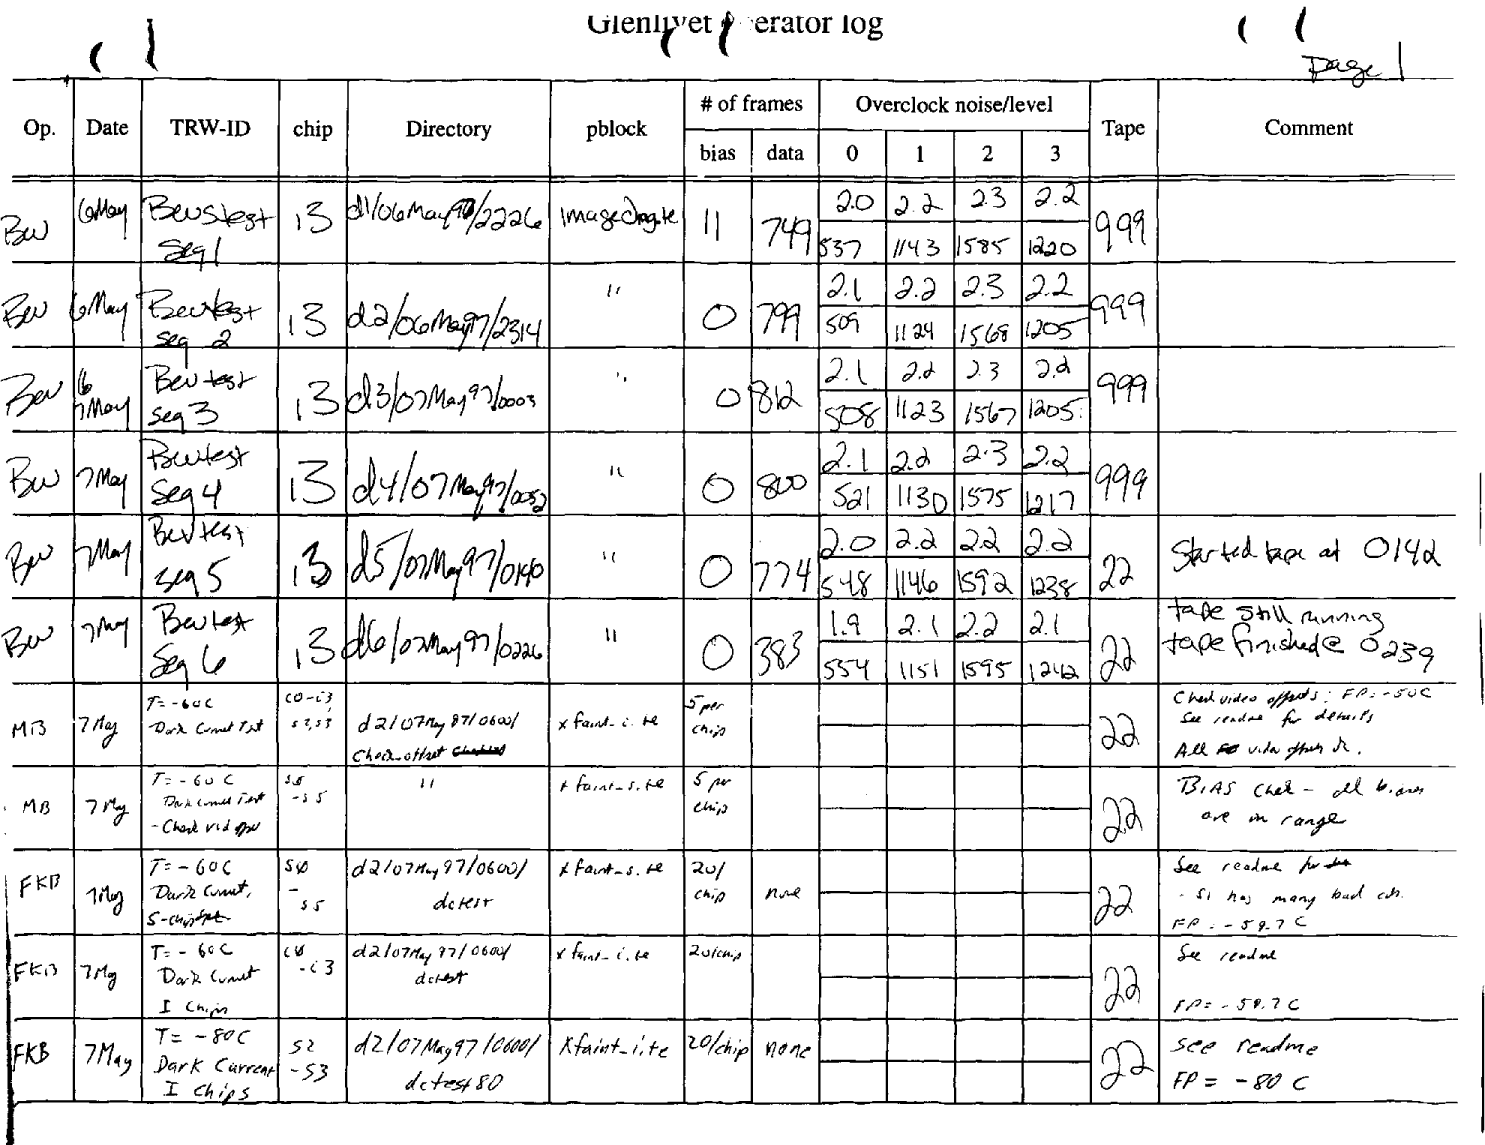 Glenlivet operator log
page 1
Op. Date TRW-ID chip Directory pblock # of frames Overclock noise/level Tape Comment
bias data 0 1 2 3
Bev 6May Bev's test i3 d1/06May97/2226 11 749 2.0 2.2 2.3 2.2 999
seg 1 537 1143 1585 1220
Bev 6May Bev test i3 d2/06May97/2314 " 0 799 2.1 2.2 2.3 2.2 999
seg 2 509 1124 1568 1205
Bev 6 Bev test i3 d3/07May97/0003 " 0 812 2.1 2.2 2.3 2.2 999
7May seg 3 508 1123 1567 1205
Bev 7May Bev test i3 d4/07May97/0052 " 0 800 2.1 2.2 2.3 2.2 999
seg 4 521 1130 1575 1217
Bev 7May Bev test i3 d5/07May97/0140 " 0 774 2.0 2.2 2.2 2.2 22 Started tape at 0142
seg 5 548 1146 1592 1238
Bev 7May Bev test i3 d6/07May97/0226 " 0 383 1.9 2.1 2.2 2.1 22 tape still running
seg 6 554 1151 1595 1242 tape finished @ 0239
MB 7May T=-60C c0-i3 d2/07May97/0600/ xfaint_i.te 5 per 22 Check video offsets: FP=-50C
Dark Current Test s2,s3 check_offset chip See readme for details
All video offsets ok.
MB 7May T=-60C s0 " xfaint_s.te 5 per 22 BIAS check - all biases
Dark Current Test -s5 chip are in range
- Check vid
FKB 7May T=-60C S0 d2/07May97/0600/ xfaint_s.te 20/ none 22 See readme for
Dark Current, - dctest chip - S1 has many bad
S-chips s5 FP=-59.7 C
FKB 7May T=-60C -i3 d2/07May97/0600/ xfaint_i.te 20/chip 22 See readme
Dark Current dctest
I Chips FP=-59.7 C
FKB 7May T= -80C S2 d2/07May97/0600/ Xfaint_i.te 20/chip none 22 see readme
Dark Current -S3 dctest80 FP = -80 C
I Chips